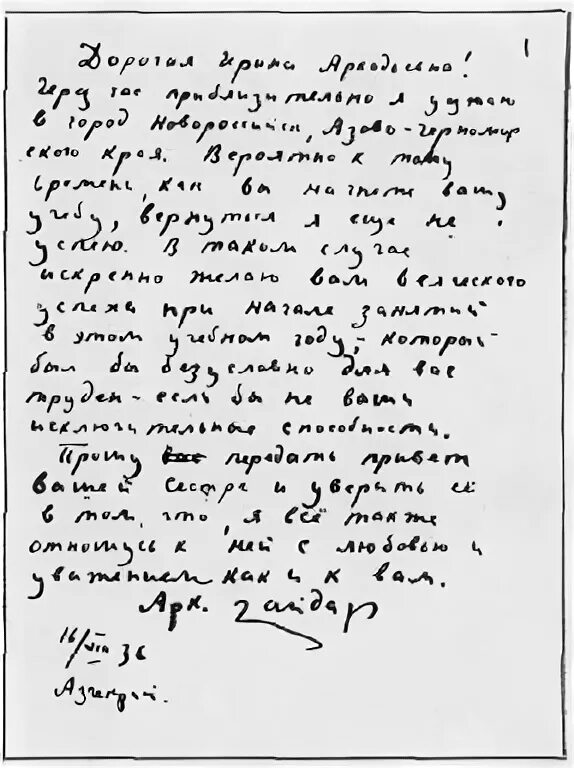 1
Дорогая Ирина Аркадьевна!
Через час приблизительно я уезжаю
в город Новороссийск, Азово-Черномор
ского края. Вероятно к тому
времени, как вы начнете вашу
учебу, вернуться я еще не
успею. В таком случае
искренно желаю вам всяческого
успеха при начале занятий
в этом учебном году, - который
был бы безусловно для вас
труден - если бы не ваши
исключительные способности.
Прошу вас передать привет
вашей сестре и уверить её
в том, что, я всё также
отношусь к ней с любовью и
уважением как и к вам.
Арк. Гайдар
16/VIII 36
Азчеркрай.